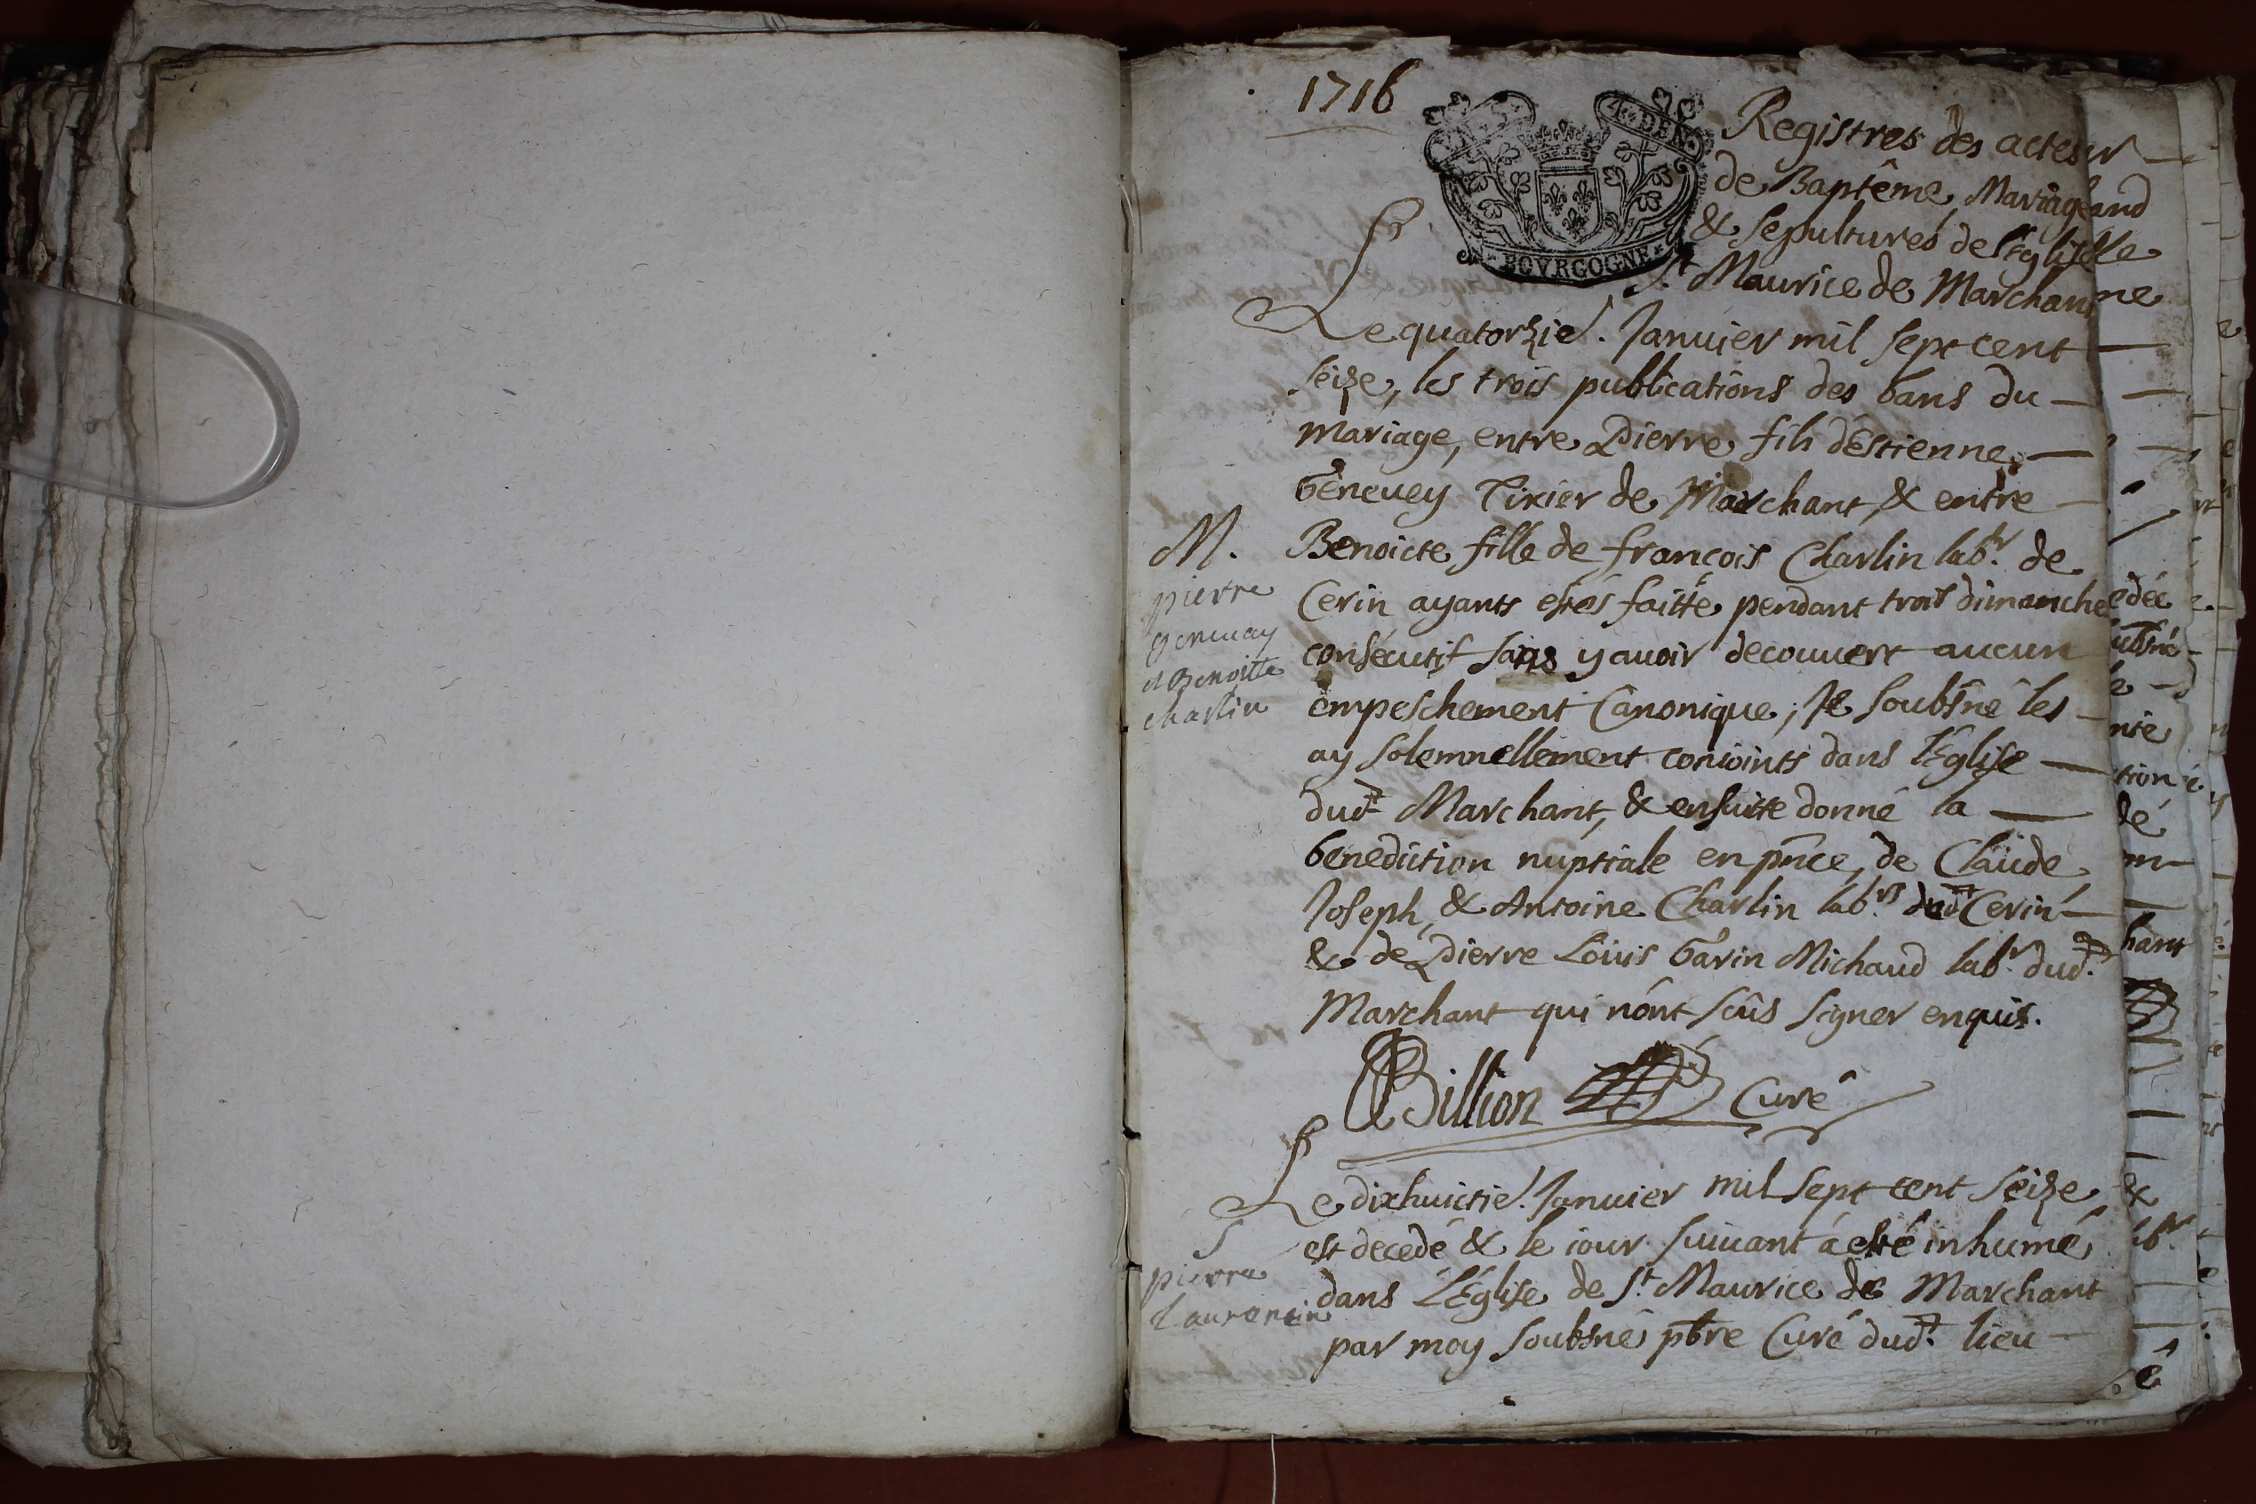 1716
4. DEN
BOVRGOGNE
Registres des actes
de Baptême Mariage
& sepultures de l'Eglise
St Maurice de Marchant
Le quatorzie. Januier mil sept cent
seize, les trois publications des bans du
mariage, entre Pierre fils d'Estienne
Genevey Tixier de Marchant, & entre
M.
Benoicte fille de françois Charlin labr. de
pierre
Genevay
et Benoitte
charlin
Cerin ayants estés faitte pendant trois dimanche
consécutif sans y avoir decouvert aucun
empeschement Canonique; Je soubsné les
ay solemnellement conioints dans l'Eglise
dudt Marchant, & ensuitte donné la
benediction nuptiale en pnce, de Claude
Joseph, & Antoine Charlin labrs dudt Cerin
& de Pierre Louis Garin Michaud labr. dudt.
Marchant qui n'ont sçûs signer enquis.
Billion Curé
Le dixhuictie. Januier mil sept cent seize
S
est decedé & le iour suivant á esté inhumé
pierre
Laurencin
dans l'Église de St. Maurice de Marchant
par moy soubsné pbre Curé dudt. lieu